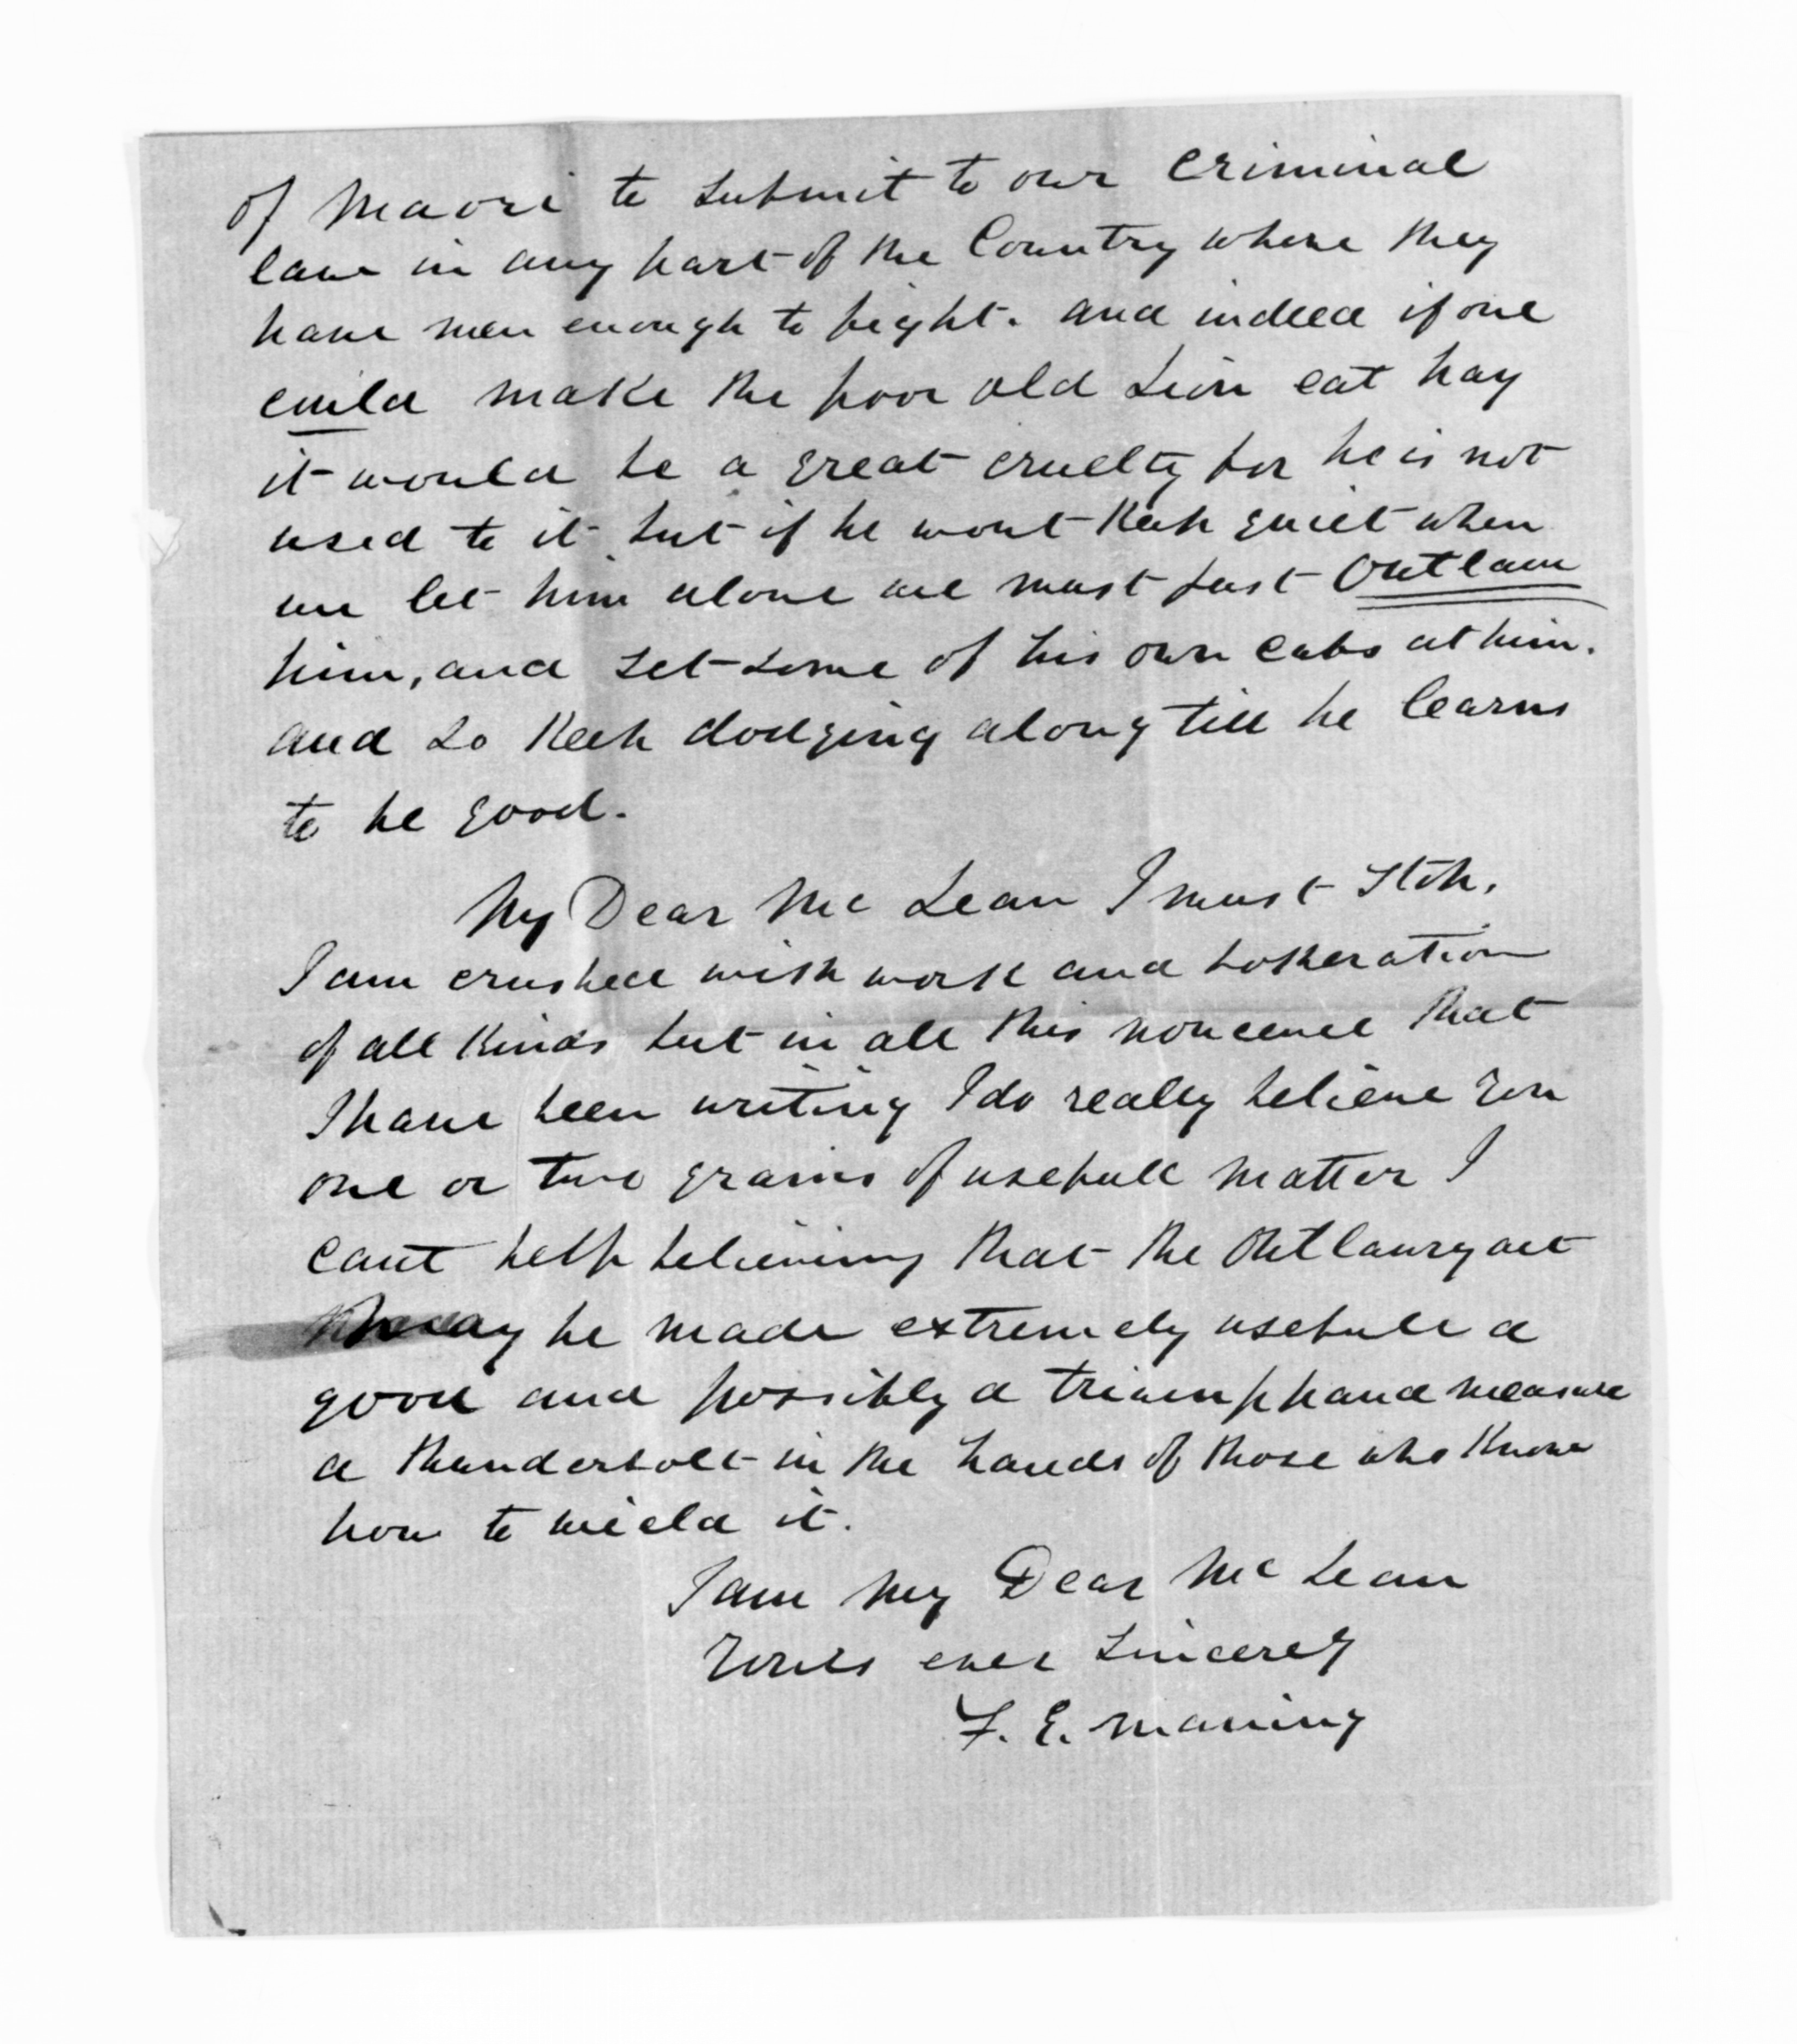 of Maori to submit to our Criminal
law in any part of the Country where they
have men enough to fight. and indeed if one
could make the poor old Lion eat hay
it would be a great cruelty for he is not
used to it but if he wont Keep quiet when
we let him alone we must just Outlaw
him, and set some of his own cubs at him.
and so Keep dodging along till he learns
to be good.
My Dear McLean I must stop.
I am crushed with work and botheration
of all Kinds but in all this noncence that
I have been writing I do really believe you
one or two grains of usefull matter I
cant help believing that the Outlawry act
may be made extremely usefull a
good and possibly a triumphand measure
a thunderbolt in the hands of those who Know
how to wield it.
I am My Dear McLean
Yours ever sincerely
F. E. Maning